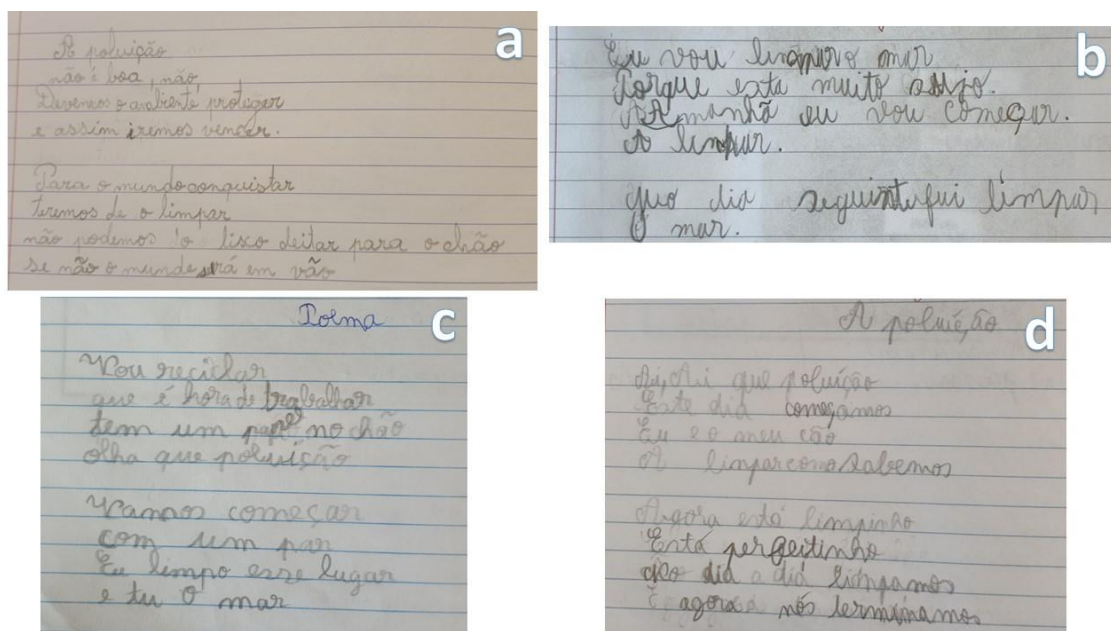 a
A poluição
não é boa, não,
Devemos o ambiente proteger
e assim iremos vencer.
Para o mundo conquistar
teremos de o limpar
não podemos o lixo deitar para o chão
se não o mundo será em vão
b
Eu vou limpar o mar
Porque esta muito sujo.
Amanhã eu vou começar.
A limpar.
No dia seguinte fui limpar
O mar.
c
Poema
Vou reciclar
que é hora de trabalhar
tem um papel no chão
olha que poluição
Vamos começar
com um par
Eu limpo esse lugar
e tu O mar
d
A poluição
Ai, Ai que poluição
Este dia começamos
Eu e o meu cão
A limpar como sabemos
Agora está limpinho
Está perfeitinho
No dia a dia limpamos
E agora nós terminamos